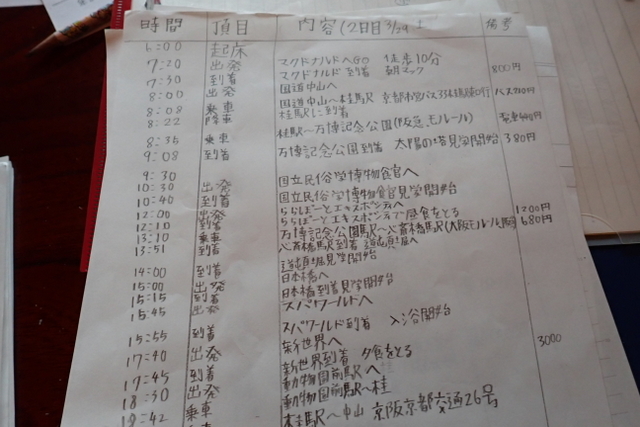 時間 項目 内容(2日目 3/29 備考
6:00 起床
7:20 出発 マクドナルドへGO 徒歩10分
7:30 到着 マクドナルド到着 朝マック 800円
8:00 出発 国道中山へ
8:08 乗車 国道中山〜桂駅 京都市営バス
8:22 降車 桂駅に到着
8:35 乗車 桂駅〜万博記念公園(阪急、モノルール)
9:08 到着 万博記念公園到着 太陽の塔見学開始 380円
9:30 国立民俗学博物館へ
10:30 出発 国立民俗学博物館見学開始
10:40 到着 ららぽーとエキスポシティへ
12:00 出発 ららぽーとエキスポシティ昼食をとる 1200円
12:10 到着 万博記念公園駅〜心斎橋駅(大阪モノルール 680円
13:10 乗車 心斎橋駅到着 道頓堀へ
13:51 到着 道頓堀見学開始
14:00 到着 日本橋へ
15:00 出発 日本橋到着見学開始
15:15 到着 スパワールドへ
15:45 出発 スパワールド到着 入浴開始
15:55 到着 新世界へ
17:40 出発 新世界到着 夕食をとる 3000
17:45 到着 動物園前駅へ
18:30 出発 動物園前駅〜桂
18:42 乗車 桂駅〜中山 京阪京都交通26号